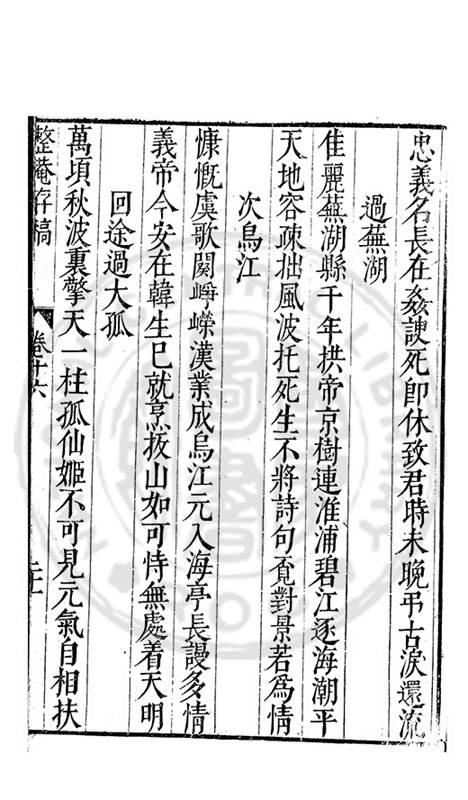 忠義名長在姦諛死即休致君時未晚弔古淚還流
過蕪湖
佳麗蕪湖縣千年拱帝京樹連淮浦碧江逐海潮平
天地容疎拙風波托死生不將詩句覔對景若爲情
次烏江
慷慨虞歌闋崢嶸漢業成烏江元入海亭長謾多情
義帝今安在韓生已就烹拔山如可恃無處着天明
回途過大孤
萬頃秋波裏擎天一柱孤仙姬不可見元氣自相扶
整菴存稿
卷十六